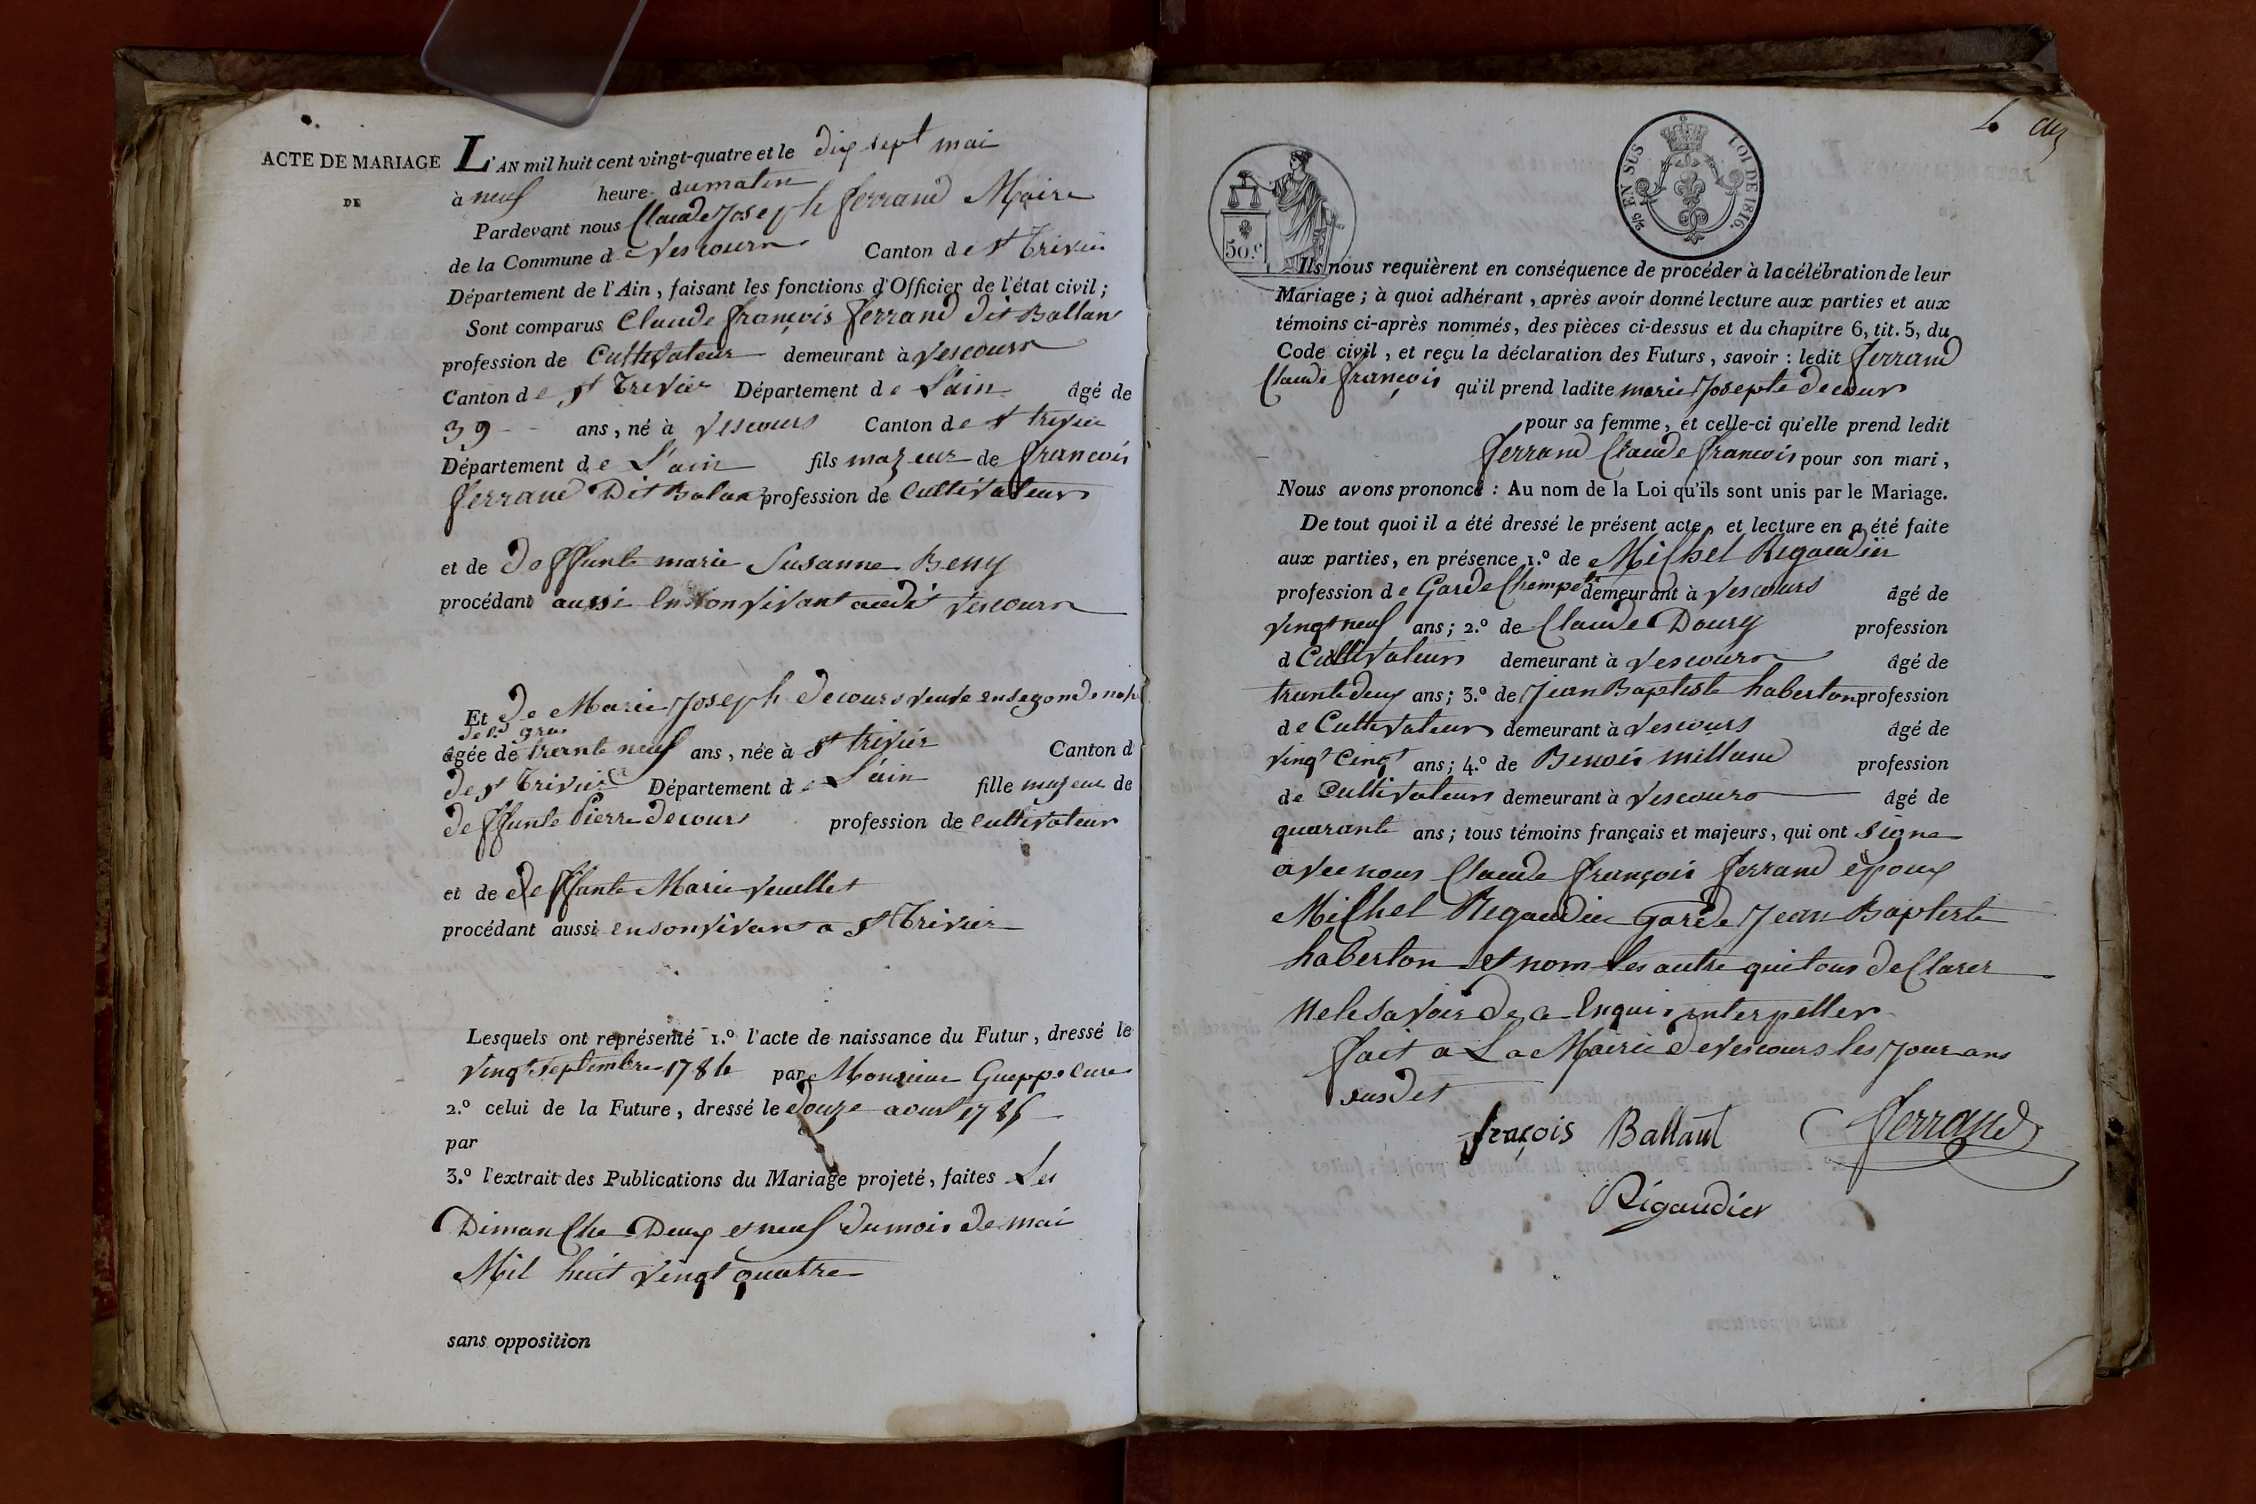 ACTE DE MARIAGE
DE
L'AN mil huit cent vingt-quatre et le dix sept mai
à neuf heure du matin
Pardevant nous Claude Joseph ferrand Maire
de la Commune de Vescours Canton de St Trivier
Département de l'Ain, faisant les fonctions d'Officier de l'état civil;
Sont comparus Claude françois ferrand dit Ballan
profession de Cultivateur demeurant à Vescours
Canton de St Trivier Département de L'ain âgé de
39 ans, né à Vescours Canton de St trivier
Département de L'ain fils mageur de francois
ferrand Dit Balan profession de Cultivateur
et de deffunte marie Susanne Beny
procédant aussi en son vivant audit Vescours
Et de Marie Joseph decours veuve en segonde
de gras
âgée de trante neuf ans, née à St trivier Canton d
de St Trivier Département de L'ain fille mageur de
deffunte Pierre decours profession de cultivateur
et de deffunte Marie veuillet
procédant aussi en son vivant a St Trivier
Lesquels ont représenté 1.º l'acte de naissance du Futur, dressé le
vingt septembre 1784 par Monsieur Gueppe Cure
2.º celui de la Future, dressé le douze avril 1785
par
3.º l'extrait des Publications du Mariage projeté, faites Les
Dimanche Deux et neuf du mois de mai
Mil huit vingt quatre
sans opposition
EN SUS LOI DE 1816.
50.c
Ils nous requièrent en conséquence de procéder à la célébration de leur
Mariage; à quoi adhérant, après avoir donné lecture aux parties et aux
témoins ci-après nommés, des pièces ci-dessus et du chapitre 6, tit. 5, du
Code civil, et reçu la déclaration des Futurs, savoir: ledit ferrand
Claude françois qu'il prend ladite marie Josepte decour
pour sa femme, et celle-ci qu'elle prend ledit
ferrand Claude francois pour son mari,
Nous avons prononcé: Au nom de la Loi qu'ils sont unis par le Mariage.
De tout quoi il a été dressé le présent acte, et lecture en a été faite
aux parties, en présence 1.º de Michel Rigaudier
profession de Garde Champetr demeurant à Vescours âgé de
vingt neuf ans; 2.º de Claude Doury profession
d Cultivateur demeurant à Vescours âgé de
trante deux ans; 3.º de Jean Baptiste haberton profession
de Cultivateur demeurant à Vescours âgé de
vingt cinq ans; 4.º de Benois milland profession
de Cultivateur demeurant à Vescours âgé de
quarante ans; tous témoins français et majeurs, qui ont signe
avec nous Claude françois ferrand époux
Michel Rigaudier garde Jean Baptiste
haberton et nom les autre qui tous declarer
ne le savoir de ce enquis interpeller
fait a La Mairie de Vescours les Jour ans
susdit
fraçois Ballant ferrand
Rigaudier